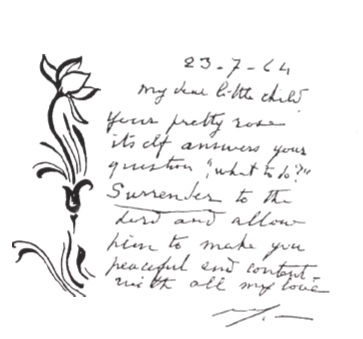 23-7-64
My dear little child
Your pretty rose
itself answers your
question "what to do?"
Surrender to the
Lord and allow
him to make you
peaceful and content
with all my love
M.